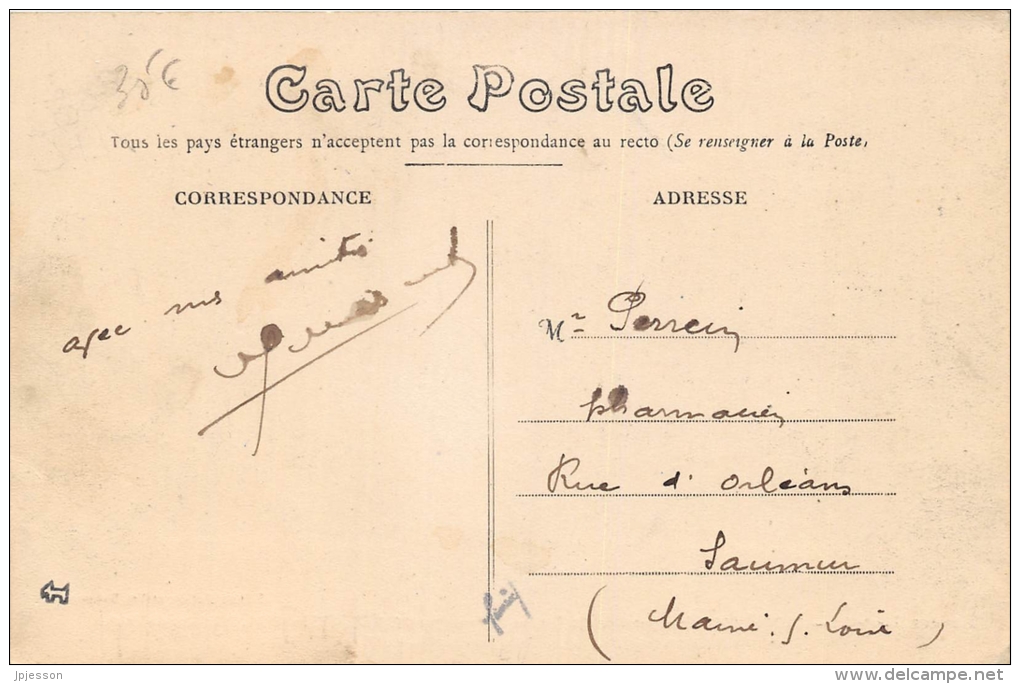 35€
Carte Postale
Tous les pays étrangers n'acceptent pas la correspondance au recto (Se renseigner à la Poste)
CORRESPONDANCE
ADRESSE
avec mes amitiés
Mr Perrein
pharmacien
Rue d'Orléans
Saumur
(Maine. s. Loire)
jpjesson
delcampe.net